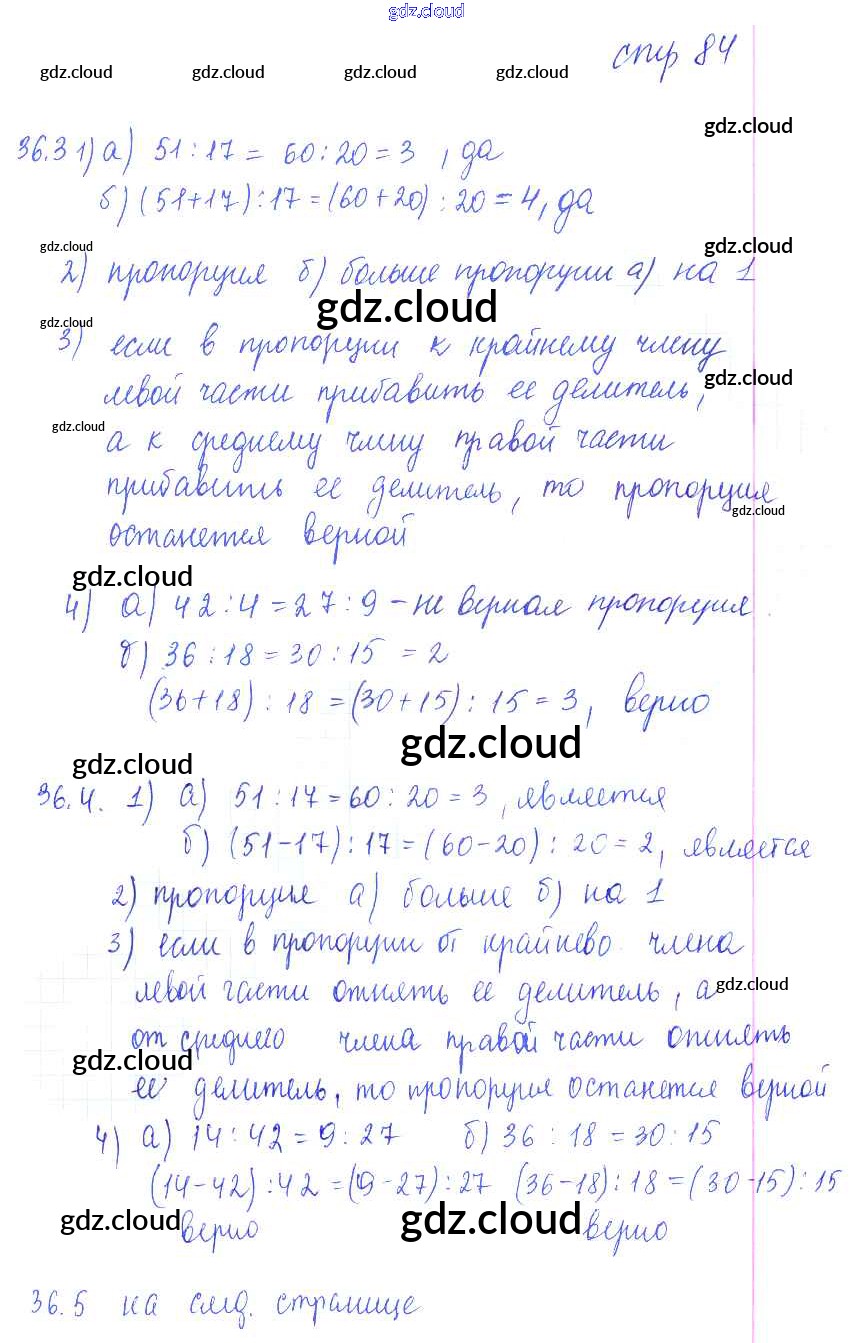 gdz.cloud
стр 84
gdz.cloud gdz.cloud gdz.cloud gdz.cloud
gdz.cloud
36.3 1) а) 51:17 = 60:20 = 3, да
б) (51+17):17 = (60+20):20 = 4, да
gdz.cloud gdz.cloud
2) пропорция б) больше пропорции а) на 1
gdz.cloud
gdz.cloud
3) если в пропорции к крайнему члену
левой части прибавить ее делитель,
gdz.cloud
gdz.cloud
а к среднему члену правой части
прибавить ее делитель, то пропорция
gdz.cloud
останется верной
gdz.cloud
4) а) 42:4 = 27:9 – не верная пропорция
б) 36:18 = 30:15 = 2
(36+18):18 = (30+15):15 = 3, верно
gdz.cloud
gdz.cloud
36.4. 1) а) 51:17 = 60:20 = 3, является
б) (51-17):17 = (60-20):20 = 2, является
2) пропорция а) больше б) на 1
3) если в пропорции от крайнево члена
левой части отнять ее делитель, а
gdz.cloud
от среднего члена правой части отнять
gdz.cloud
ее делитель, то пропорция останется верной
4) а) 14:42 = 9:27 б) 36:18 = 30:15
(14-42):42 = (9-27):27 (36-18):18 = (30-15):15
gdz.cloud gdz.cloud
верно верно
36.5 на след. странице